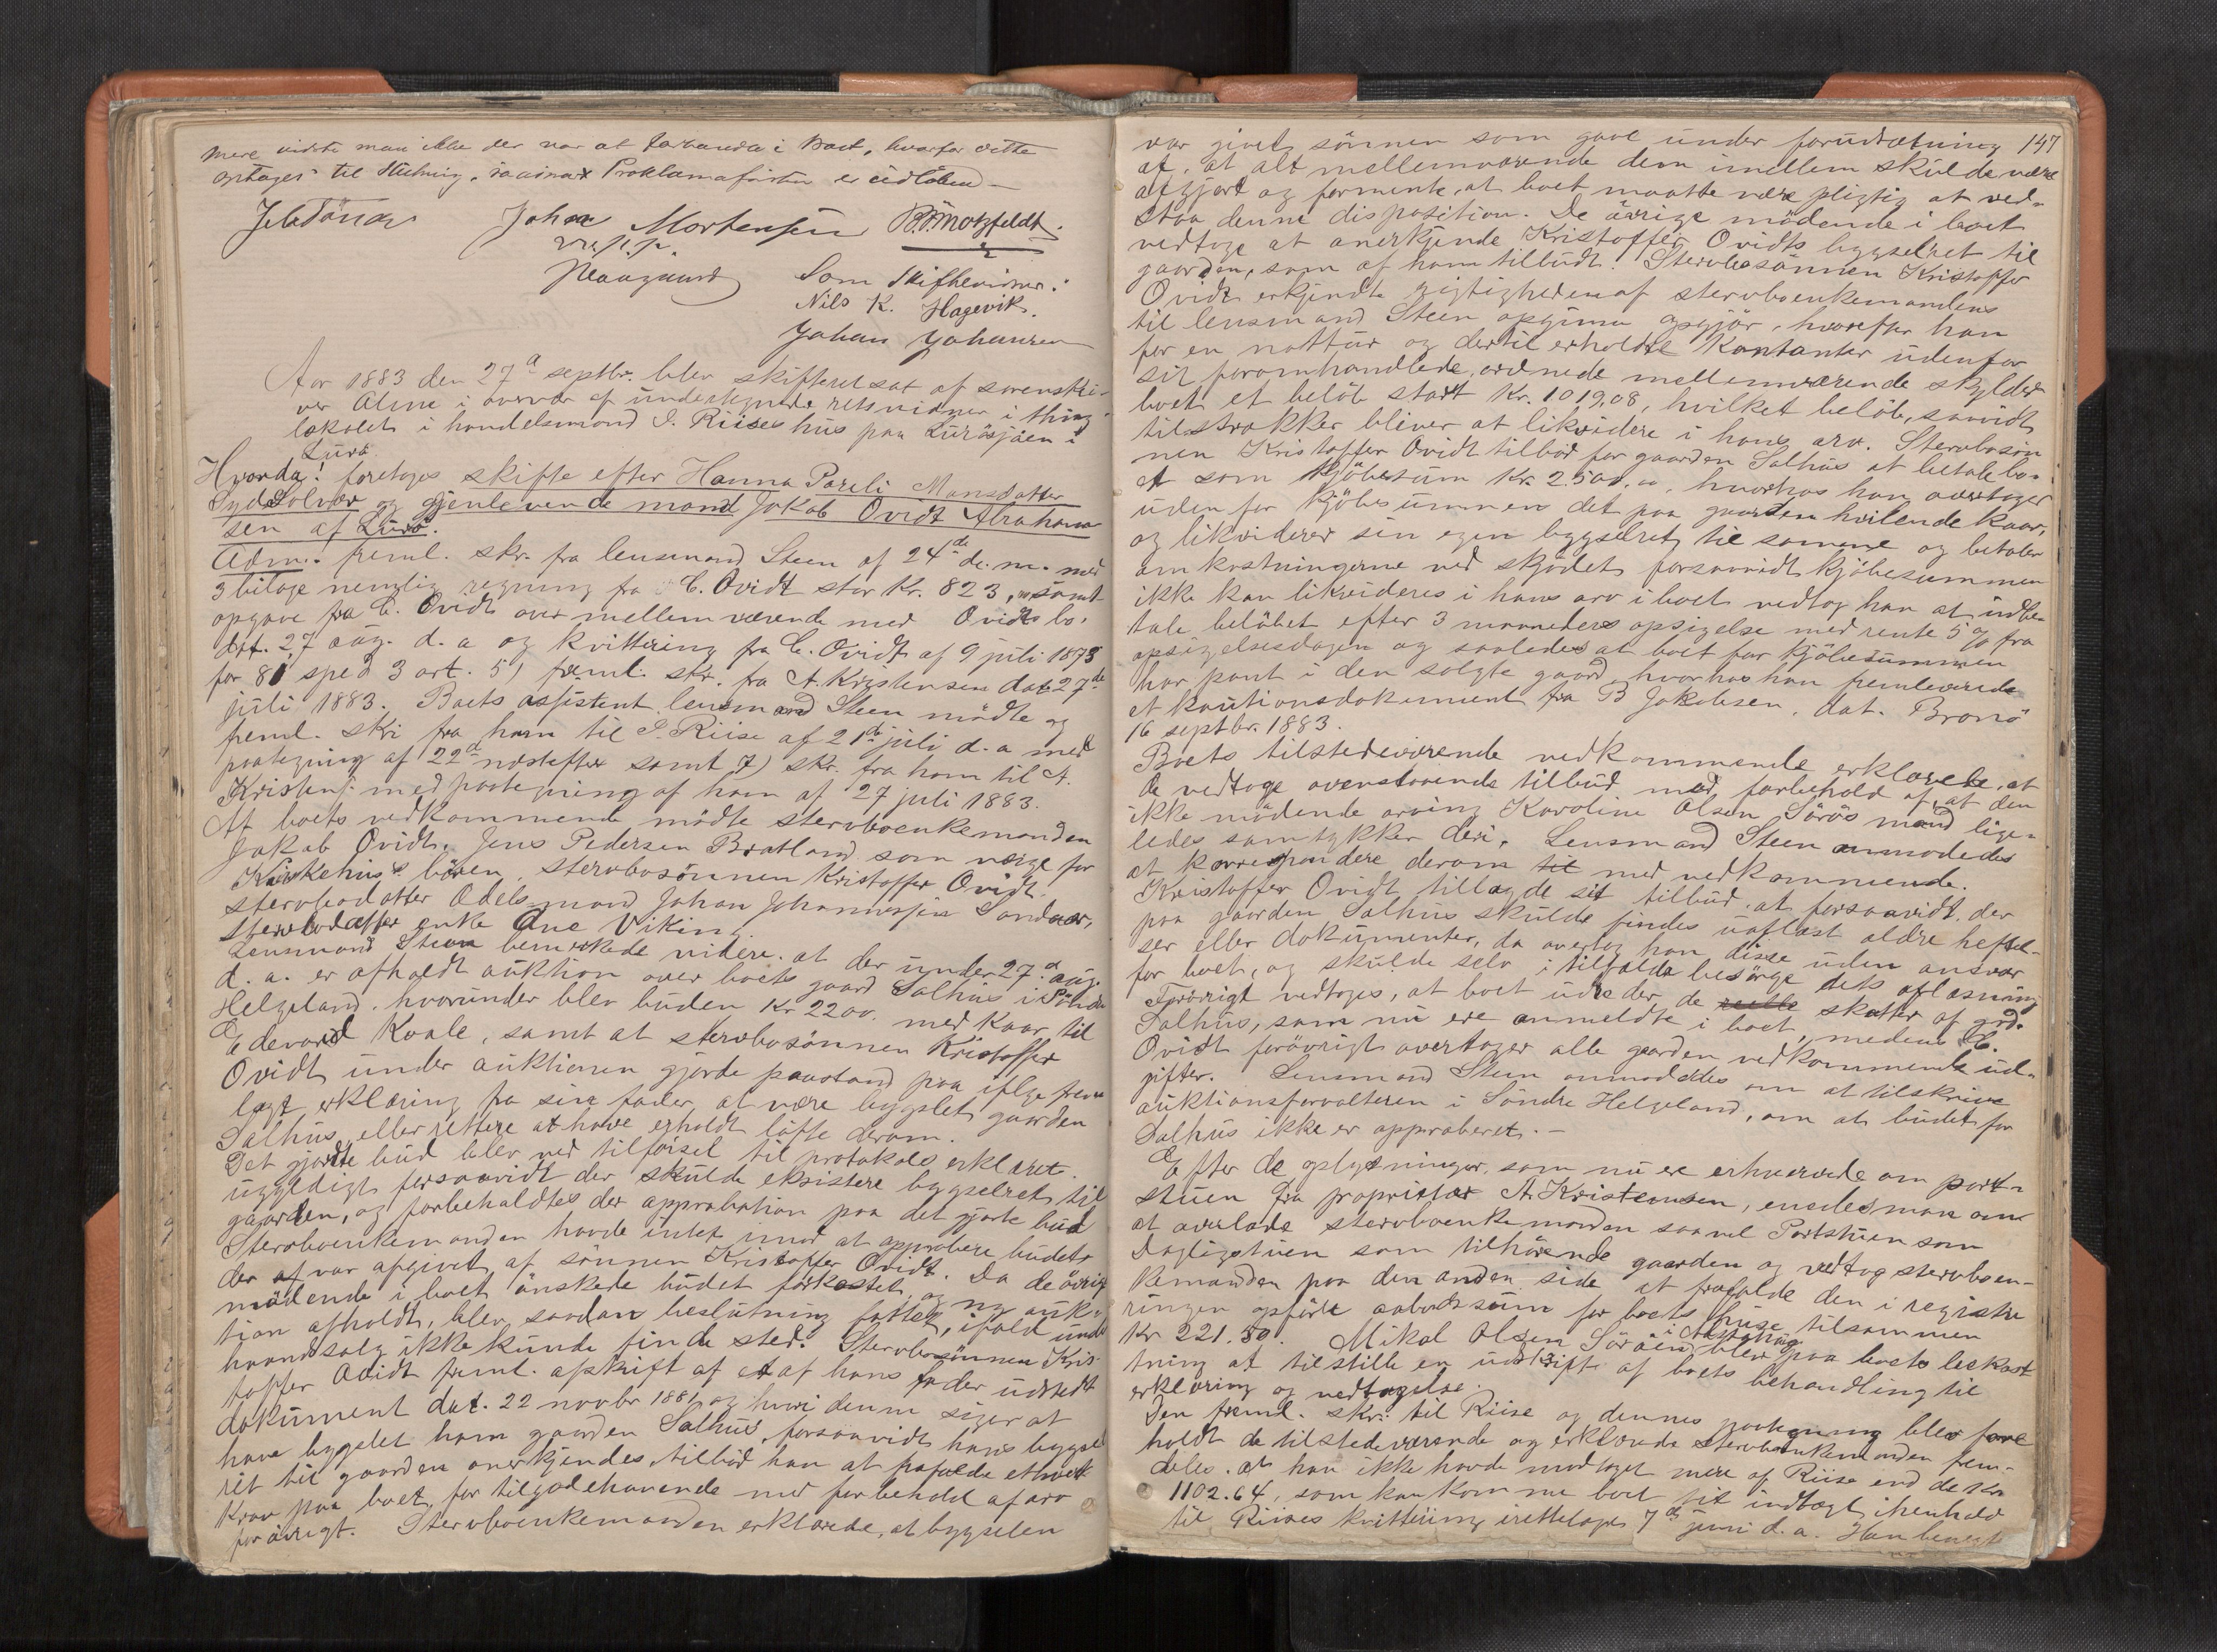 mere vidste man ikke der var at forhandle i Boet, hvorfor dette
optages til Slutning, saasnart Proklamafristen er udløben –
Johan Mortensen B. Motzfeldt.
Som Skiftevidner:
Nils K. Hagevik.
Johan Johansen
Aar 1883 den 27d septbr. blev skifteret sat af sorenskri-
ver Alme i overvær af undertegnede retsvidner i thing-
lokalet i handelsmand I. Riises hus paa Lurøsjøen i
Lurø.
Hvorda! foretoges skifte efter Hanna Pareli Monsdatter
Sydsolvær og gjenlevende mand Jakob Ovidt Abraham-
sen af Lurø.
Adm. freml. skr. fra lensmand Steen af 24de d. m. med
3 bilage nemlig regning fra C. Ovidt stor Kr. 823, samt
opgave fra C. Ovidt over mellemværende med Ovidts bo,
dat. 27 aug. d. a og kvittering fra C. Ovidt af 9 juli 1873
for 81 spcd 3 ort. 5) freml. skr. fra A. Kristensen dat. 27de
juli 1883. Boets assistent lensmand Steen mødte og
freml. skr. fra ham til I. Riise af 21de juli d. a med
paategning af 22d næstefter samt 7) skr. fra ham til A.
Kristens. med paategning af ham af 27 juli 1883.
Af boets vedkommende mødte stervboenkemanden
Jakob Ovidt, Jens Pedersen Bratland som værge for
børen, stervbosønnen Kristoffer Ovidt.
stervbodatter Odels mand Johan Johannessen Sandvær,
stervbodatter enke Ane Viking.
Lensmand Steen bemerkede videre, at der under 27d aug.
d. a. er afholdt auktion over boets gaard Salhus i Søndre
Helgeland, hvorunder blev buden Kr 2200. med Kaar til
Edevard Kvale, samt at stervbosønnen Kristoffer
Ovidt under auktionen gjorde paastand paa iflge frem-
lagt erklæring fra sin fader, at være bygslet gaarden
Salhus, eller rettere at have erholdt løfte derom.
Det gjorte bud blev ved tilførsel til protokols erklæret
ugyldigt forsaavidt der skulde eksistere bygselret til
gaarden, og forbeholdtes der approbation paa det gjorte bud
Stervboenkemanden havde intet imod at approbere budet
der af var afgivet af sønnen Kristoffer Ovidt. Da de øvrige
mødende i boet ønskede budet forkastet og ny auk-
tion afholdt, blev saadan beslutning fattet, ifald under
haandsalg ikke kunde finde sted. Stervbosønnen Kris-
toffer Ovidt freml. afskrift af et af hans fader udstedt
dokument dat. 22 novbr 1881 og hvori denne siger at
have bygslet ham gaarden Salhus, forsaavidt hans bygsel
ret til gaarden anerkjendes, tilbød han at frafalde ethvert
Krav paa boet, for tilgodehavende med forbehold af arv
forøvrigt. Stervboenkemanden erklærede, at bygselen
147
var givet sønnen som gave under forudsætning
af, at alt mellemværende dem imellem skulde være
afgjort og formente, at boet maatte være pligtig at ved-
staa denne disposition. De øvrige mødende i boet
vedtoge at anerkjende Kristoffer Ovidts bygselret til
gaarden, som af ham tilbudt. Stervbosønnen Kristoffer
Ovidt erkjendte rigtigheden af stervboenkemandens
til lensmand Steen opgivne opgjør, hvorefter han
for en nottur og dertil erholdte Kontanter udenfor
sit foromhandlede, ordnede mellemværende skylder
boet et beløb stort Kr. 1019,08, hvilket beløb, saavidt
tilstrækker bliver at likvidere i hans arv. Stervbosøn-
nen Kristoffer Ovidt tilbød for gaarden Salhus at betale bo-
et som kjøbesum Kr. 2.500,00, hvorhos han overtager
uden for kjøbesummen det paa gaarden hvilende Kaar,
og likviderer sin egen bygselret til samme og betaler
omkostningerne ved skjødet forsaavidt kjøbesummen
ikke kan likvideres i hans arv i boet vedtog han at indbe-
tale beløbet efter 3 maaneders opsigelse med rente 5% fra
opsigelsesdagen og saaledes at boet for kjøbesummen
har pant i den solgte gaard, hvorhos han fremleverede
et kautionsdokument fra B Jakobsen, dat. Brønø
16 septbr. 1883.
Boets tilstedeværende vedkommende erklærede, at
de vedtoge ovenstaaende tilbud med forbehold af, at den
ikke mødende arving Karoline Olsen Sørøs mand lige-
ledes samtykker deri. Lensmand Steen anmodedes
at korrespondere derom til med vedkommende.
Kristoffer Ovidt tillagde sit tilbud, at forsaavidt der
paa gaarden Salhus skulde findes uaflæst ældre heftel-
ser eller dokumenter, da overtog han disse uden ansvar
for boet, og skulde selv i tilfælde besørge dets aflæsning
Forøvrigt vedtoges, at boet udreder de reelle skatter af grd.
Salhus, som nu ere anmeldte i boet, medens C.
Ovidt forøvrigt overtager alle gaarden vedkommende ud-
gifter. Lensmand Steen anmodedes om at tilskrive
auktionsforvalteren i Søndre Helgeland, om at budet for
Salhus ikke er approberet. –
Efter de oplysninger, som nu ere erhvervede om port-
stuen fra proprietær A. Kristensen, enedes man om
at overlade stervboenkemanden saavel Portstuen som
Dagligstuen som tilhørende gaarden og vedtog stervboen-
kemanden paa den anden side at frafalde den i registre
ringen opførte aabodssum for boets huse tilsammen
Kr 221.50. Mikal Olsen Sørøen blev paa boets bekost
tning at tilstille en udskrift af boets behandling til
erklæring og vedtagelse.
Den freml. skr. til Riise og dennes paategning blev fore
holdt de tilstedeværende og erklærede stervboenkemanden frem-
deles, at han ikke havde modtaget mere af Riise end de Kr
1102.64, som kan komme boet til indtægt ihenhold
til Riises kvittering irettelagt 7de juni d. a. Han benegt